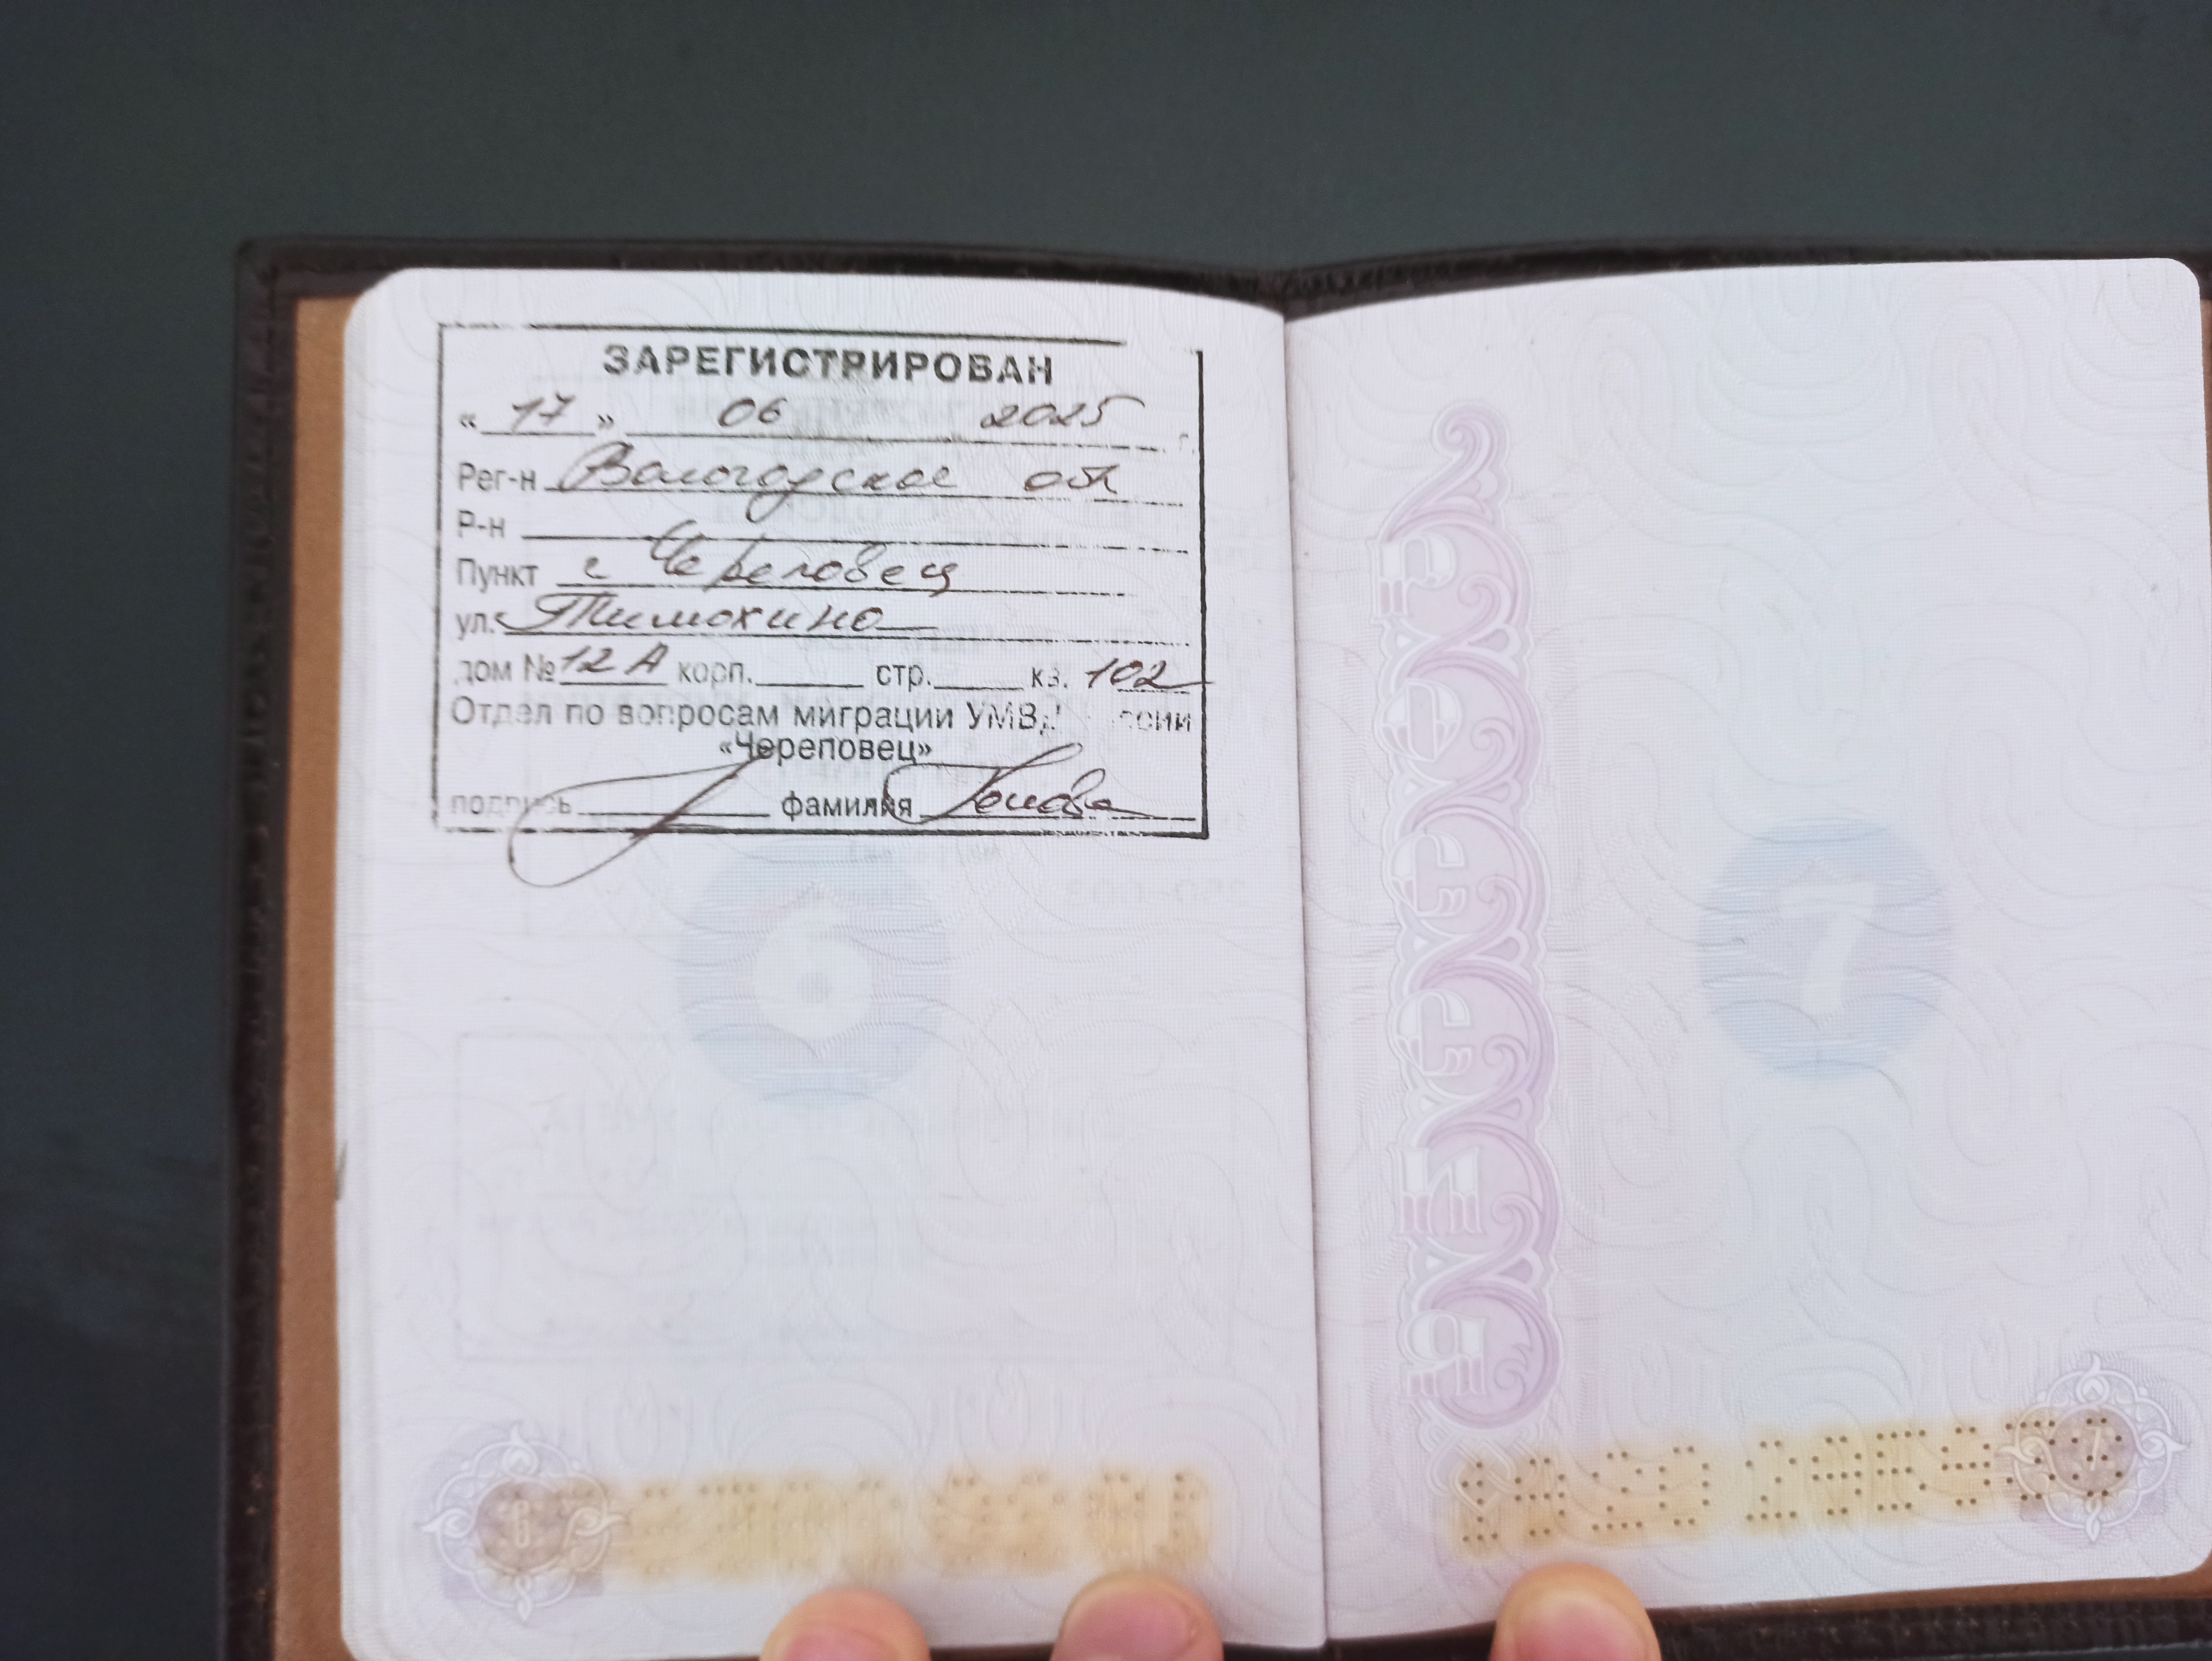 ЗАРЕГИСТРИРОВАН
« 17 » 06 2025 г.
Рег-н Вологодское обл
Р-н
Пункт г Череповец
ул. Тимохино
дом № 12 А корп. стр. кв. 102
Отдел по вопросам миграции УМВД России
«Череповец»
подпись фамилия
6
РОССИЯ
7
6
7